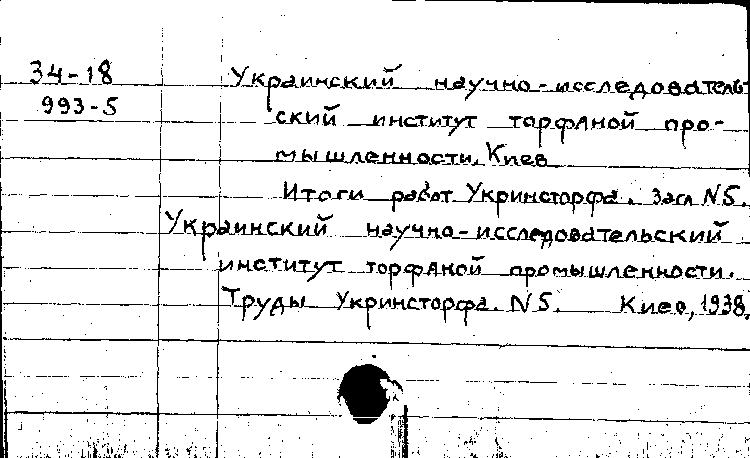 34-18 Украинский научно-исследователь-
993-5 ский институт торфяной про-
мышленности. Киев
Итоги работ Укринсторфа. Загл N5.
Украинский научно-исследовательский
институт торфяной промышленности.
Труды Укринсторфа. N5. Киев, 1938.